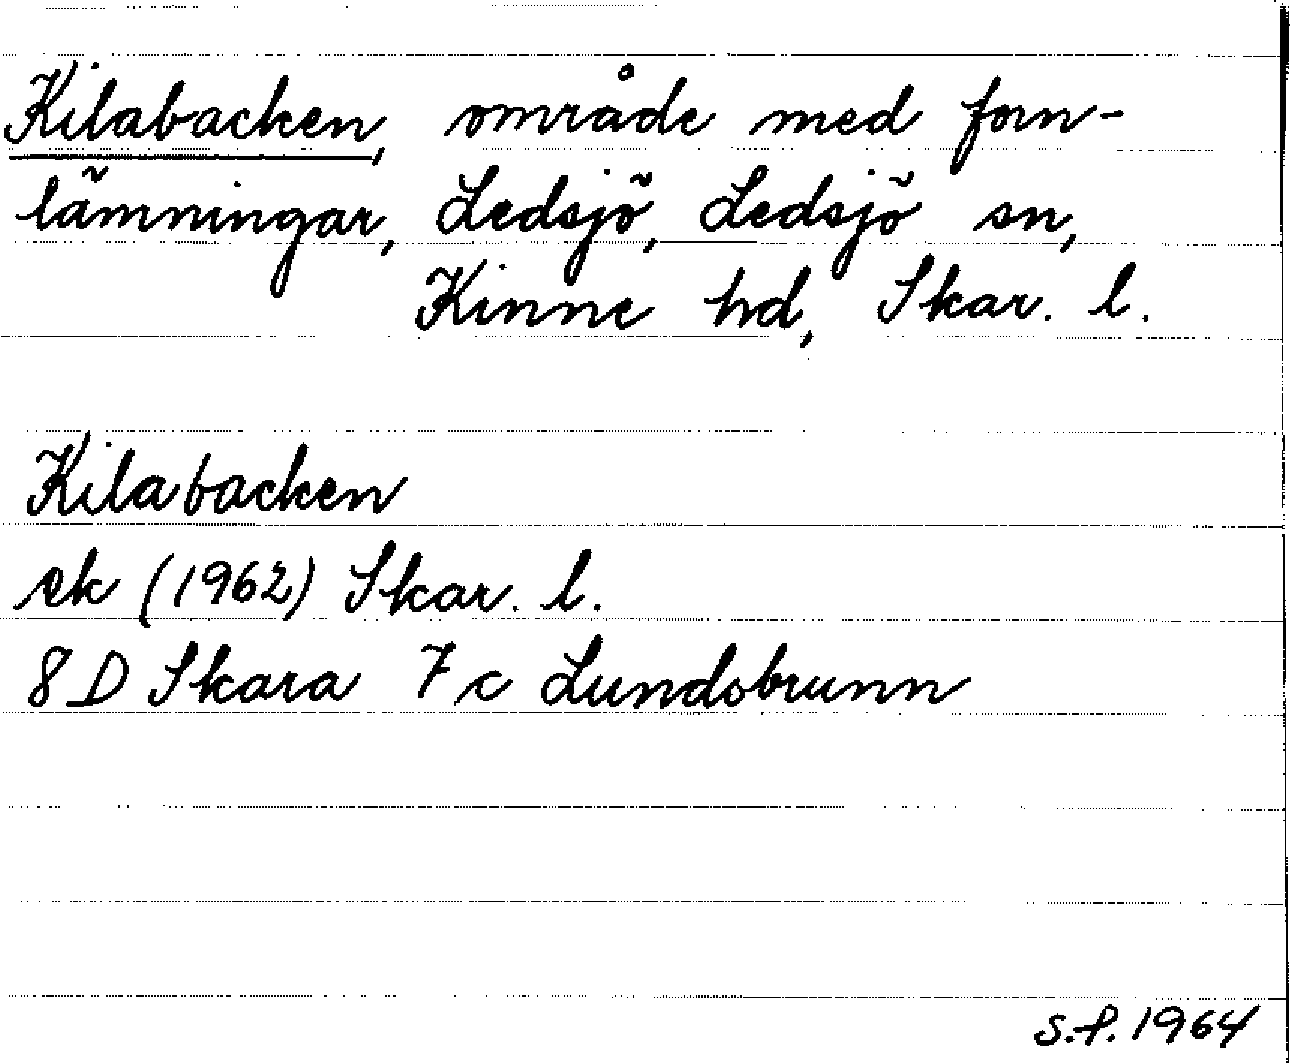 Kilabacken, område med forn-
lämningar, Ledsjö, Ledsjö sn,
Kinne hd, Skar. l.
Kilabacken
ek (1962) Skar. l.
8 D Skara 7 c Lundsbrunn
S.P. 1964